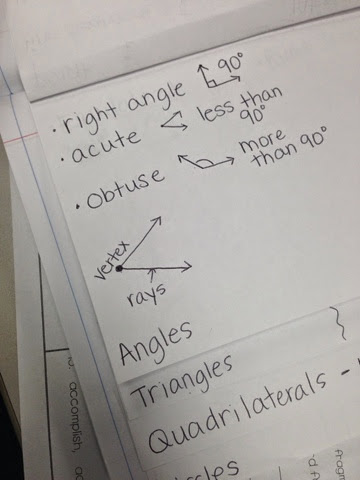 • right angle 90°
• acute less than
90°
• obtuse more
than 90°
vertex
rays
Angles
Triangles
Quadrilaterals -
accomplish,